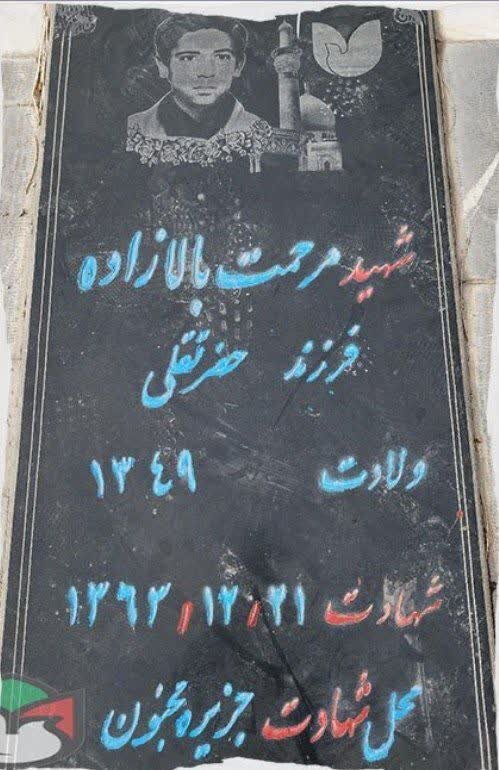 شهید مرحمت بالازاده
فرزند حضرتقلی
ولادت ۱۳۴۹
شهادت ۱۳۶۳/۱۲/۲۱
محل شهادت جزیره مجنون